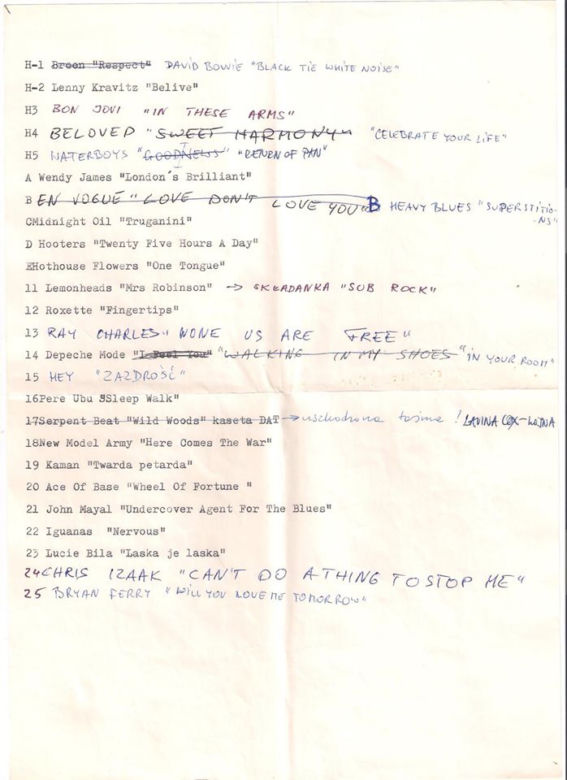 H-1 Breen "Respect" DAVID BOWIE "BLACK TIE WHITE NOISE"
H-2 Lenny Kravitz "Belive"
H3 BON JOVI "IN THESE ARMS"
H4 BELOVED "SWEET HARMONY" "CELEBRATE YOUR LIFE"
H5 WATERBOYS "GOODNEWS" "RETURN OF PAN"
A Wendy James "London's Brilliant"
B EN VOGUE "LOVE DON'T LOVE YOU" B HEAVY BLUES "SUPERSTITIO-
NS"
CMidnight Oil "Truganini"
D Hooters "Twenty Five Hours A Day"
EHothouse Flowers "One Tongue"
11 Lemonheads "Mrs Robinson" → SKŁADANKA "SUB ROCK"
12 Roxette "Fingertips"
13 RAY CHARLES "NONE US ARE FREE"
14 Depeche Mode "I Feel You" "WALKING IN MY SHOES" "IN YOUR ROOM"
15 HEY "ZAZDROŚĆ"
16Pere Ubu SSleep Walk"
17Serpent Beat "Wild Woods" kaseta DAT → uszkodzona taśma !
18New Model Army "Here Comes The War"
19 Kaman "Twarda petarda"
20 Ace Of Base "Wheel Of Fortune "
21 John Mayal "Undercover Agent For The Blues"
22 Iguanas "Nervous"
23 Lucie Bila "Laska je laska"
24CHRIS IZAAK "CAN'T DO A THING TO STOP ME"
25 BRYAN FERRY "WILL YOU LOVE ME TOMORROW"